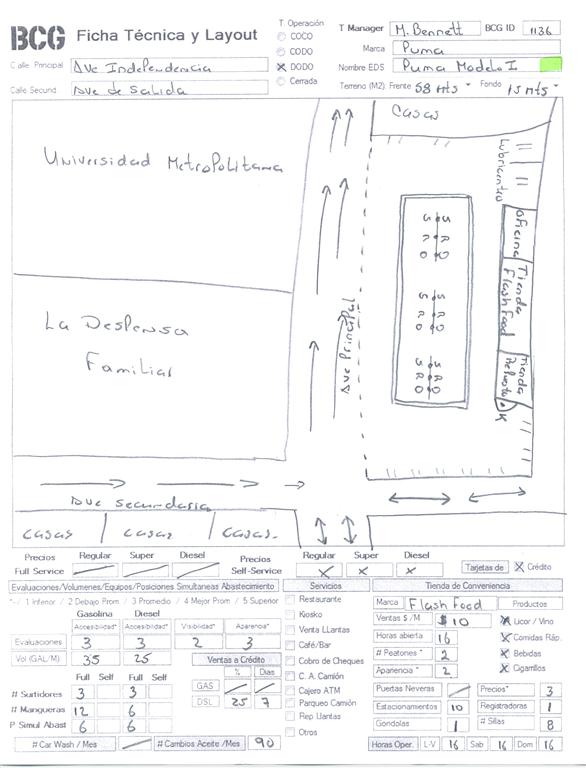 BCG Ficha Técnica y Layout
T Operación
COCO
CODO
DODO
Cerrada
T Manager M. Bennett BCG ID 1136
Marca Puma
Nombre EDS Puma Modelo I
Terreno (M2): Frente 58 mts Fondo 15 mts
Calle Principal Ave Independencia
Calle Secund. Ave de Salida
Universidad Metropolitana
La Despensa
Familiar
Ave Principal
Ave secundaria
Casas
Casas
Casas.
Casas
Lubricentro
Oficina
Tienda
Flash Food
Tienda
Repuesto
S R O
S R O
S R O
S R O
S R O
S R O
Precios Regular Super Diesel
Full Service
Precios Regular Super Diesel
Self-Service X X X
Tarjetas de X Crédito
Evaluaciones/Volumenes/Equipos/Posiciones Simultaneas Abastecimiento
*- / 1 Inferior / 2 Debajo Prom / 3 Promedio / 4 Mejor Prom / 5 Superior
Gasolina Diesel
Accesibilidad* Accesibilidad* Visibilidad* Aparencia*
Evaluaciones 3 3 2 3
Vol (GAL/M) 35 25
Ventas a Crédito
% Dias
GAS
DSL 25 7
Full Self Full Self
# Surtidores 3 3
# Mangueras 12 6
P Simul Abast 6 6
# Car Wash / Mes
# Cambios Aceite /Mes 90
Servicios
Restaurante
Kiosko
Venta LLantas
Café/Bar
Cobro de Cheques
C. A. Camión
Cajero ATM
Parqueo Camión
Rep Llantas
Otros
Tienda de Conveniencia
Marca Flash Food
Ventas $ / M $10
Horas abierta 16
# Peatones * 2
Aparencia * 2
Productos
Licor / Vino
Comidas Ráp.
Bebidas
Cigarrillos
Puertas Neveras
Precios* 3
Estacionamientos 10
Registradoras 1
Gondolas 1
# Sillas 8
Horas Oper. L-V 16 Sab 16 Dom 16